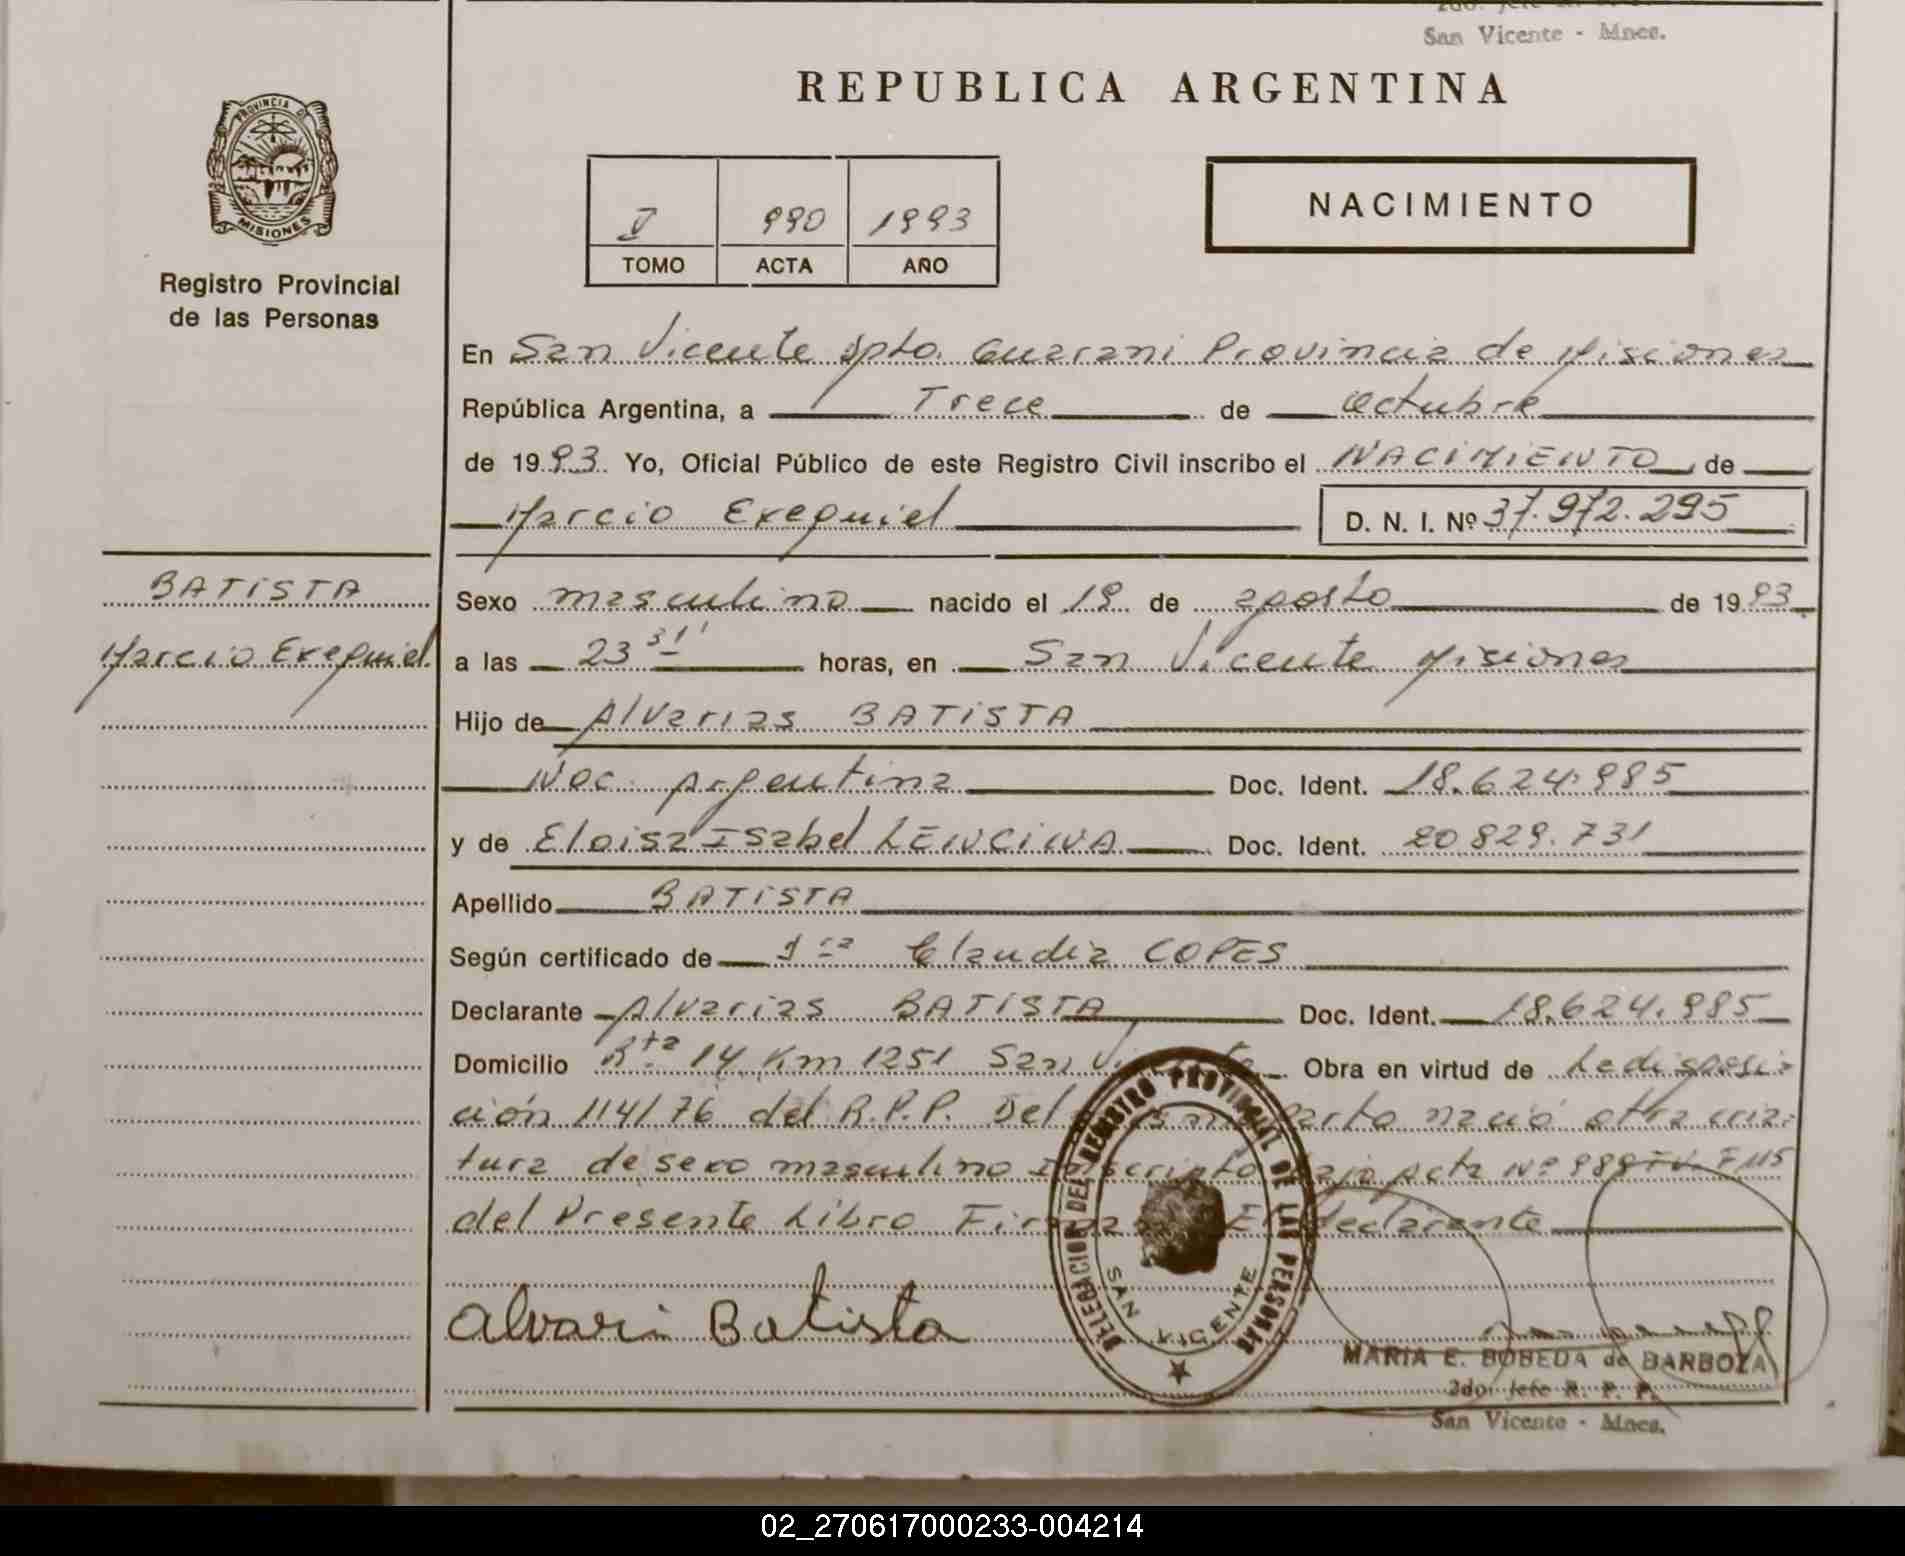 San Vicente - Mnes.
REPUBLICA ARGENTINA
PROVINCIA DE
MISIONES
Registro Provincial
de las Personas
V 990 1993
TOMO ACTA AÑO
NACIMIENTO
En San Vicente Dpto. Guarani Provincia de Misiones
República Argentina, a Trece de octubre
de 1993. Yo, Oficial Público de este Registro Civil inscribo el NACIMIENTO, de
Marcio Exequiel D. N. I. Nº 37.972.295
BATISTA
Marcio Exequiel
Sexo masculino nacido el 19 de agosto de 1993
a las 23 31' horas, en San Vicente Misiones
Hijo de Alvarias BATISTA
Nac. Argentina Doc. Ident. 18.624.985
y de Eloisa Isabel LENCINA Doc. Ident. 20.829.731
Apellido BATISTA
Según certificado de Claudia COPES
Declarante Alvarias BATISTA Doc. Ident. 18.624.985
Domicilio Rta 14 Km 1251 San Vicente Obra en virtud de La disposi-
ción 114/76 del R.P.P. Del mismo parto nació otra cria-
tura de sexo masculino Inscripto bajo Acta Nº 989 F 115
del Presente Libro Firma El declarante
Alvari Batista
DELEGACION DEL REGISTRO PROVINCIAL DE LAS PERSONAS
SAN VICENTE
MARIA E. BOBEDA de BARBOZA
2do. Jefe R. P. P.
San Vicente - Mnes.
02_270617000233-004214